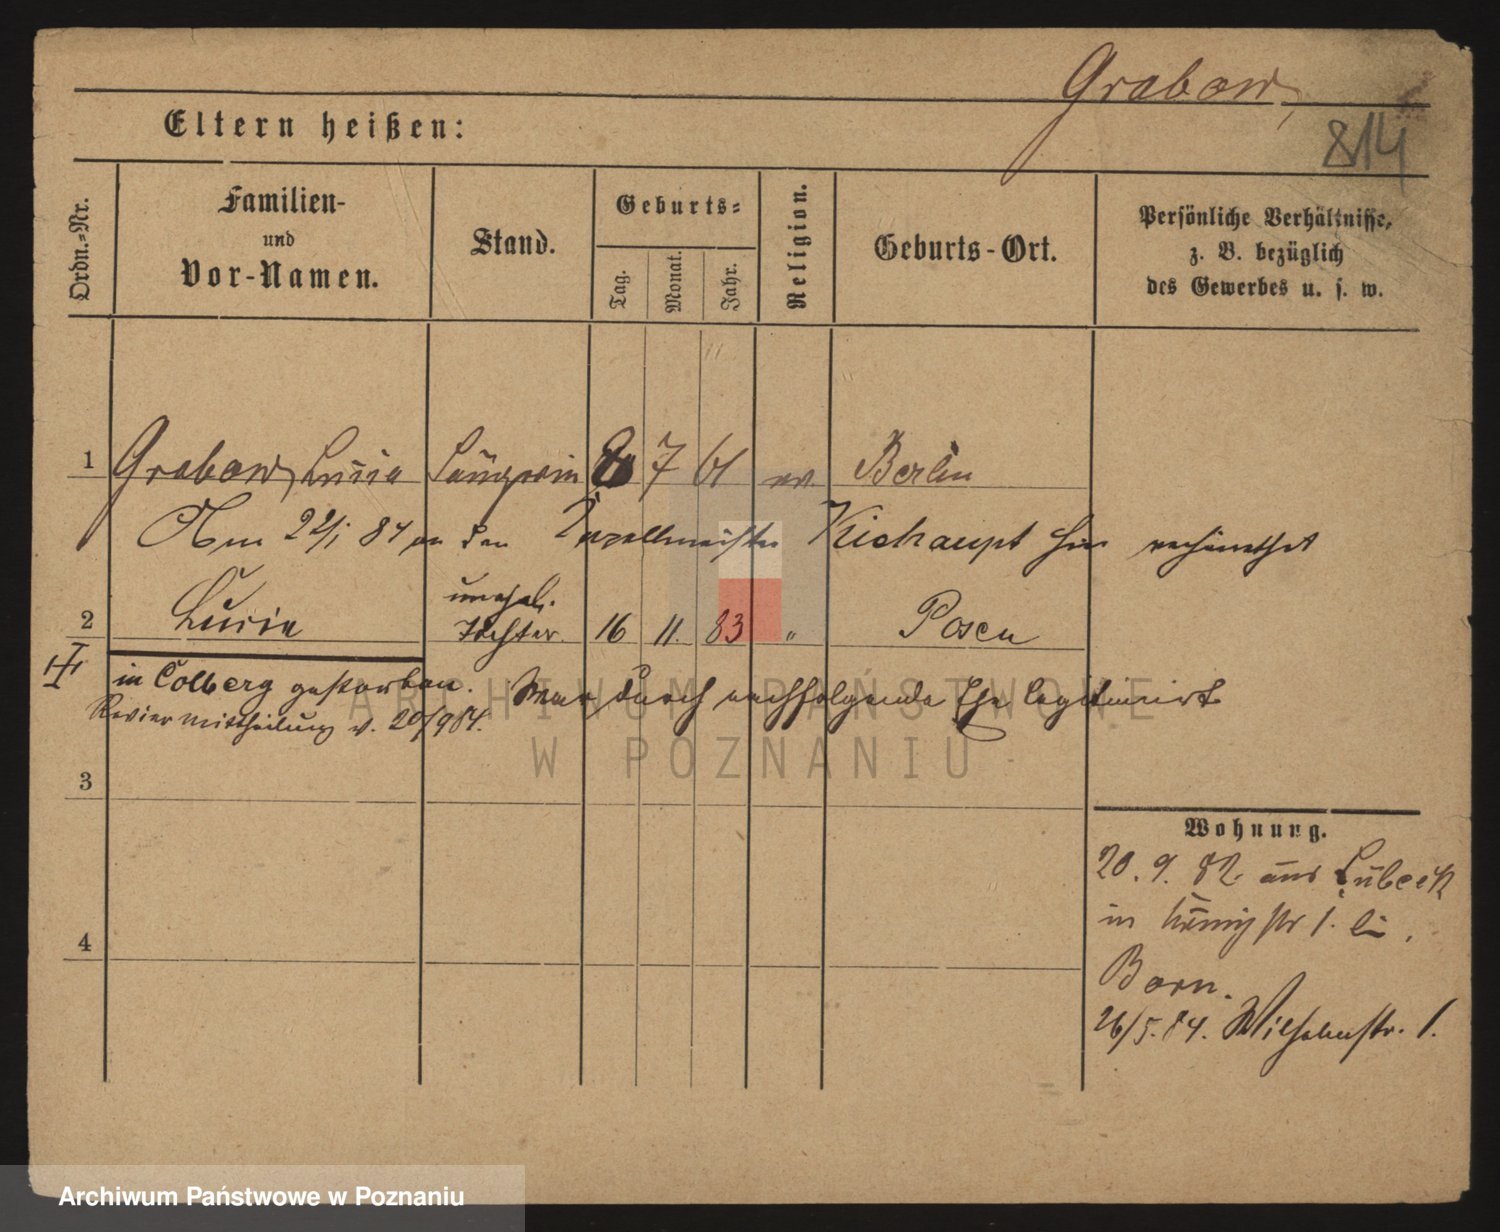 Grabow,
814
Eltern heißen:
Ordn.-Nr.
Familien-
und
Vor-Namen.
Stand.
Geburts-
Tag.
Monat.
Jahr.
Religion.
Geburts-Ort.
Persönliche Verhältnisse,
z. B. bezüglich
des Gewerbes u. s. w.
1 Grabow, Lucia Sängerin 7 61 ev. Berlin
Am 22/1 84 an den Kapellmeister hier verheirathet
2 Lucie unehel. Tochter. 16 11. 83 " Posen
in Colberg gestorben. War durch nachfolgende Ehe legitimirt
Reviermittheilung v. 20/9 84.
3
4
Wohnung.
20. 9. 82. aus Lübeck
in Königstr 1. bei
Born.
26/5. 84. Wilhelmstr. 1.
ARCHIWUM PAŃSTWOWE
W POZNANIU
Archiwum Państwowe w Poznaniu